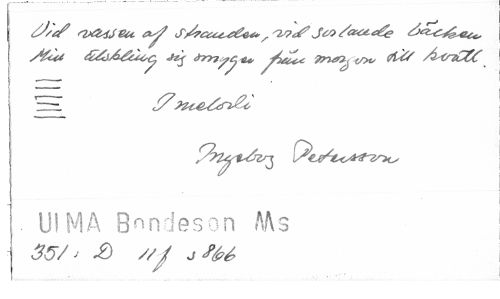 Vid vassen af stranden, vid sorlande bäcken
Min älskling sig smyger från morgon till kväll.
I melodi
Ingeborg Petersson
ULMA Bondeson Ms
351: D 11f s 866